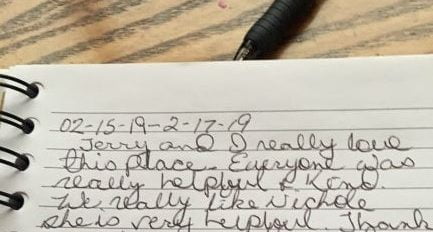 02-15-19-2-17-19
Jerry and I really love
this place. Everyone was
really helpful & Kind.
We really like Nichole
she is very helpful. Thank